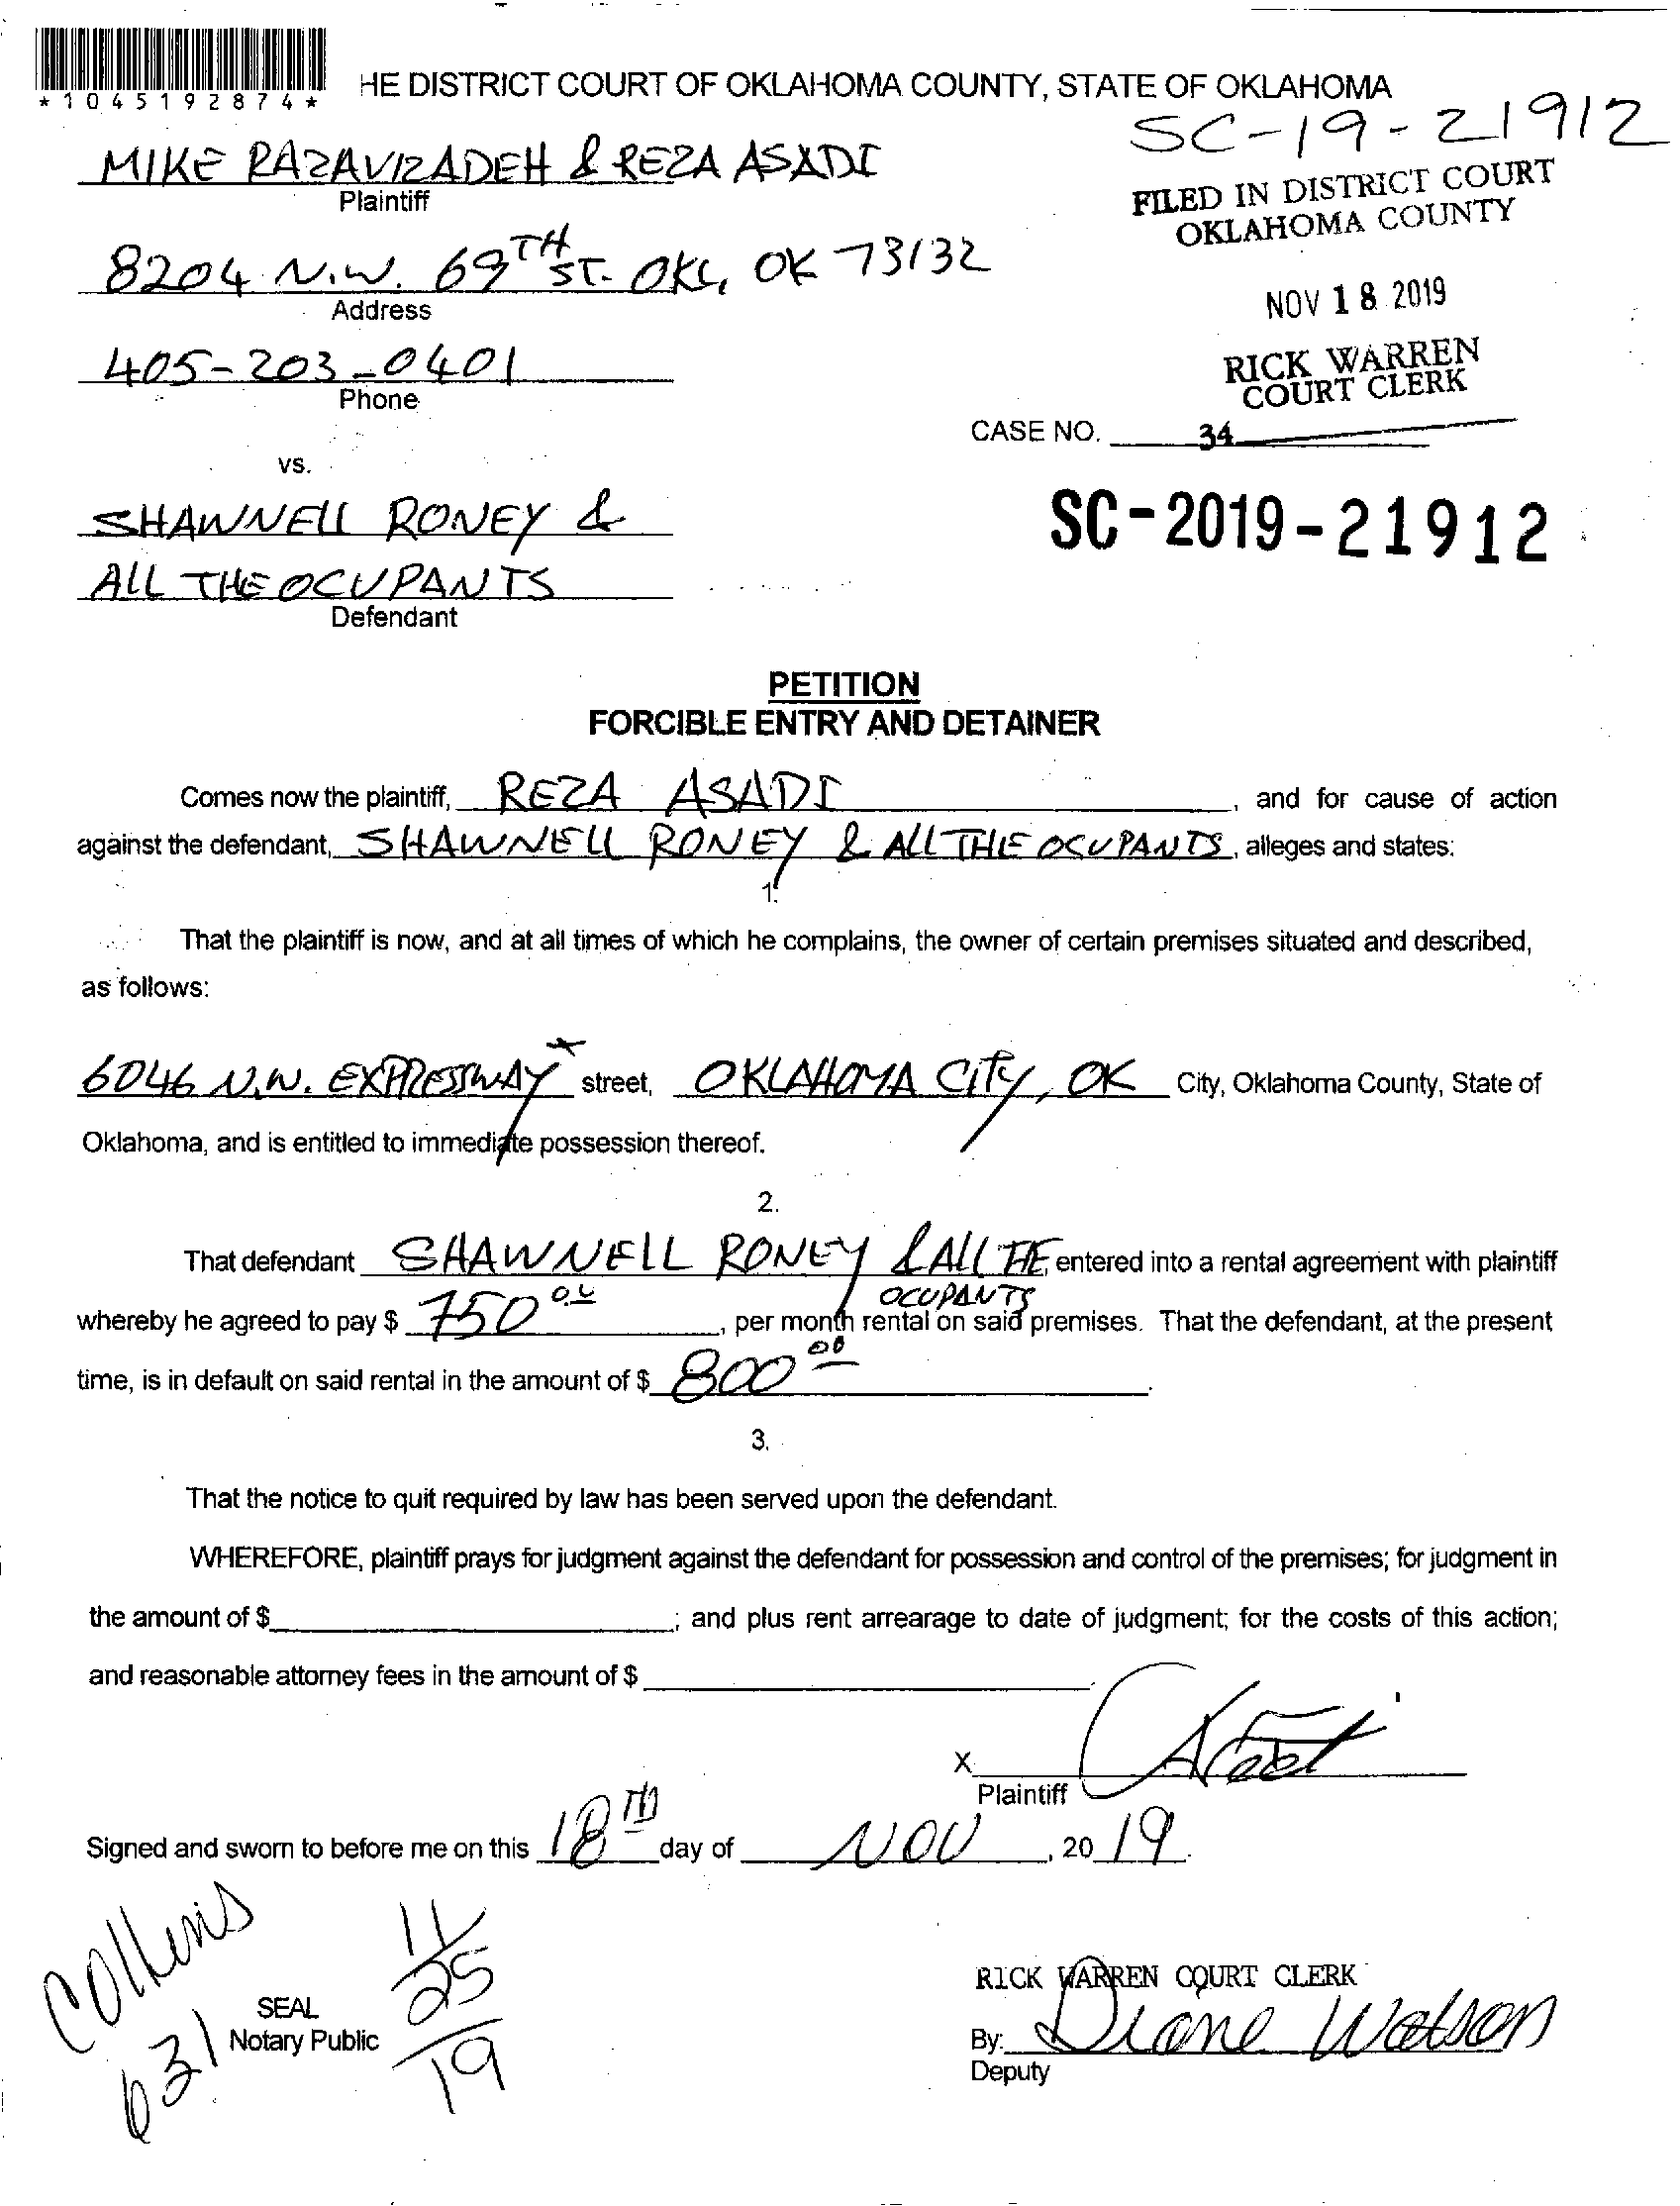 *1045192874*
HE DISTRICT COURT OF OKLAHOMA COUNTY, STATE OF OKLAHOMA
SC-19-21912
MIKE RAZAVIZADEH & REZA ASADI
Plaintiff
FILED IN DISTRICT COURT
OKLAHOMA COUNTY
8204 N.W. 69TH ST. OKC, OK 73132
Address
NOV 18 2019
405-203-0401
Phone
RICK WARREN
COURT CLERK
CASE NO. 34
vs.
SHAWNELL RONEY &
SC-2019-21912
ALL THE OCUPANTS
Defendant
PETITION
FORCIBLE ENTRY AND DETAINER
Comes now the plaintiff, REZA ASADI, and for cause of action
against the defendant, SHAWNELL RONEY & ALL THE OCUPANTS, alleges and states:
1.
That the plaintiff is now, and at all times of which he complains, the owner of certain premises situated and described,
as follows:
6046 N.W. EXPRESSWAY street, OKLAHOMA CITY, OK City, Oklahoma County, State of
Oklahoma, and is entitled to immediate possession thereof.
2.
That defendant SHAWNELL RONEY & All THE entered into a rental agreement with plaintiff
OCUPANTS
whereby he agreed to pay $ 750 00, per month rental on said premises. That the defendant, at the present
time, is in default on said rental in the amount of $ 800 00.
3.
That the notice to quit required by law has been served upon the defendant.
WHEREFORE, plaintiff prays for judgment against the defendant for possession and control of the premises; for judgment in
the amount of $ ; and plus rent arrearage to date of judgment; for the costs of this action;
and reasonable attorney fees in the amount of $ .
X
Plaintiff
Signed and sworn to before me on this 18TH day of NOV, 20 19.
Collins
631
11/25/19
SEAL
Notary Public
RICK WARREN COURT CLERK
By: Diane Watson
Deputy